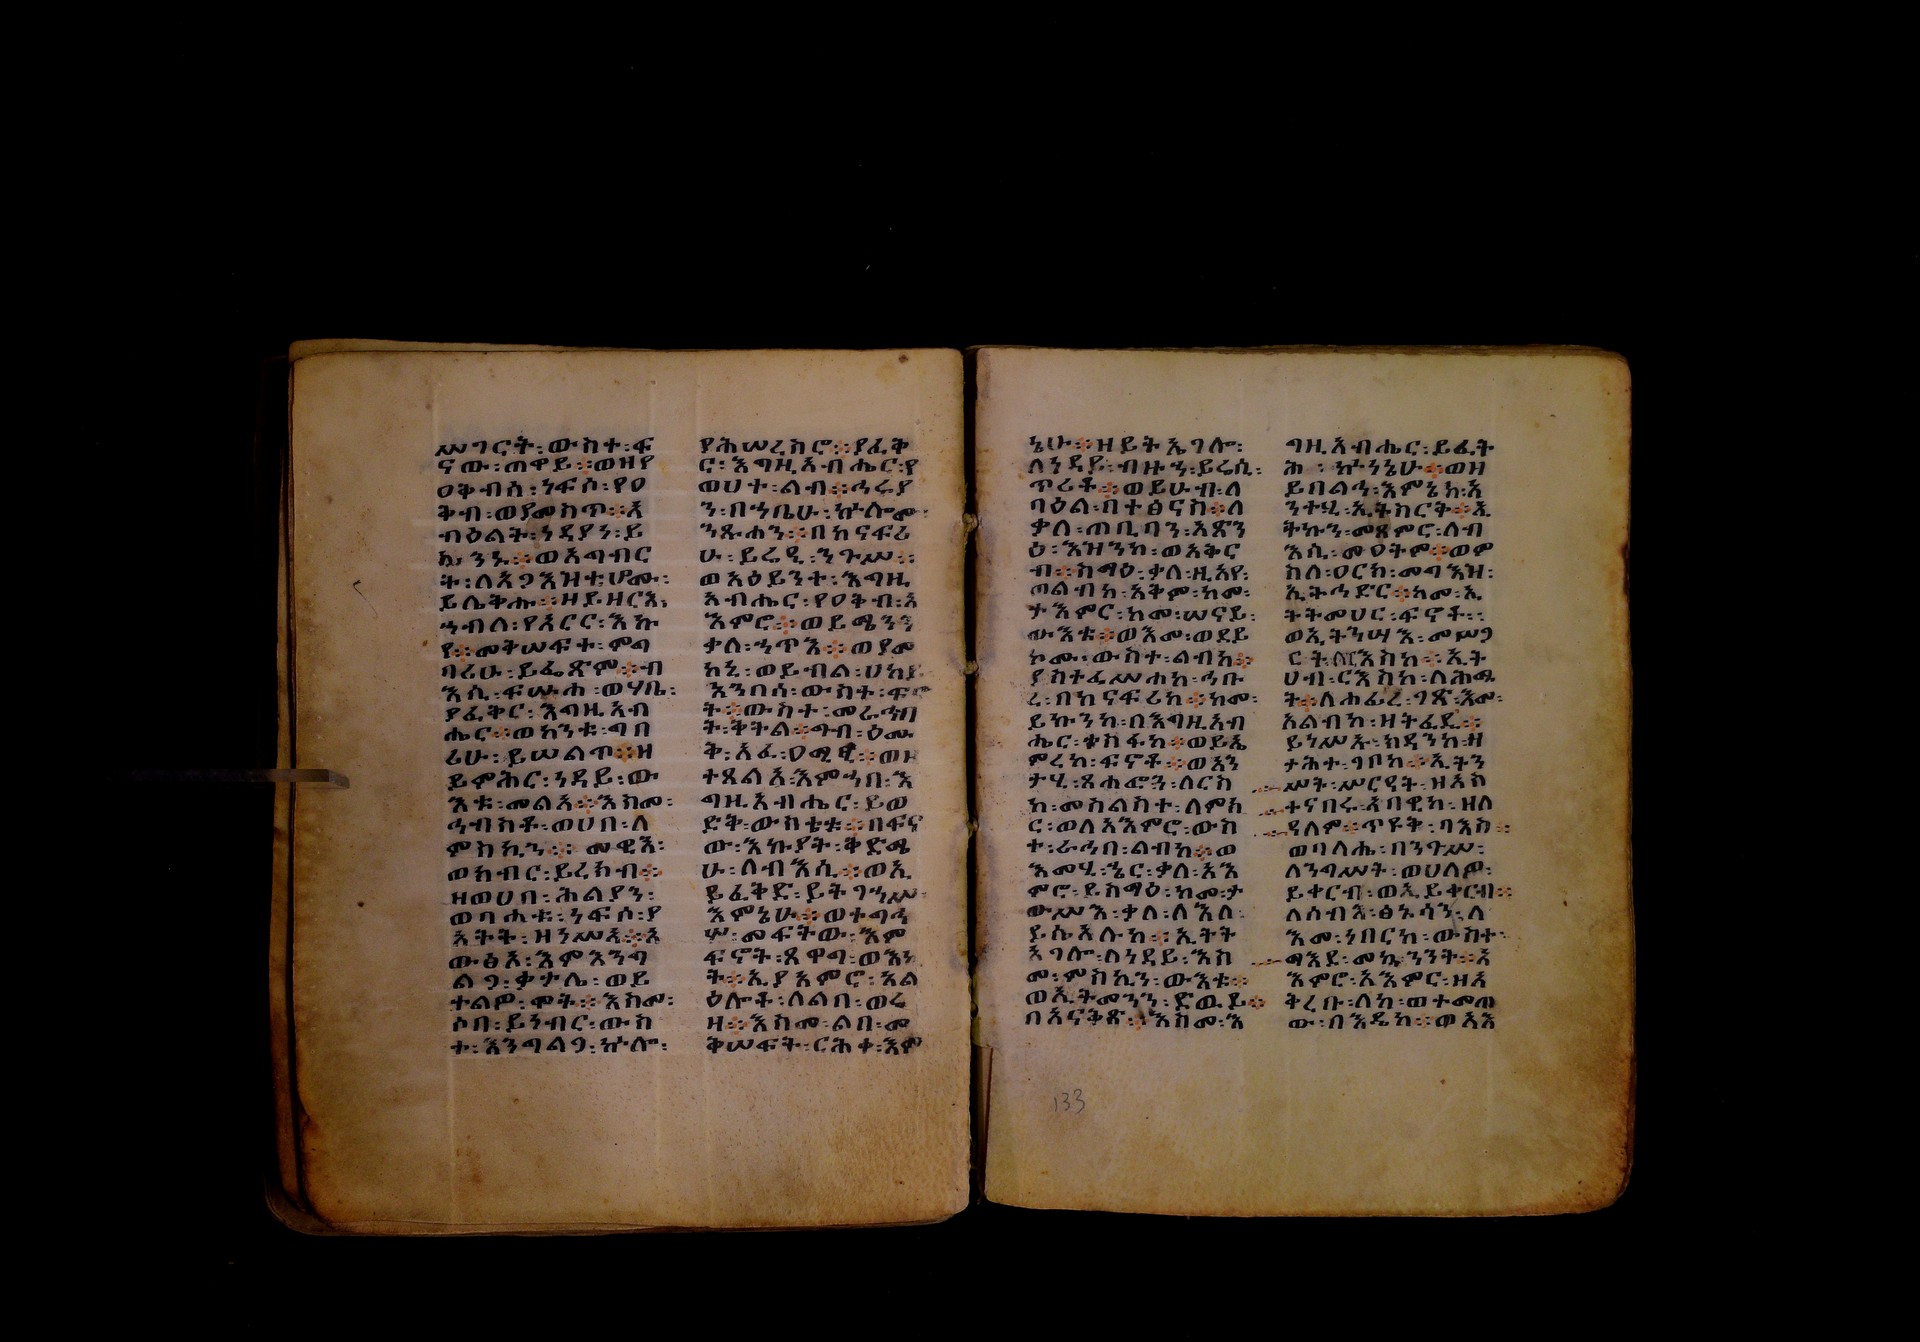 ሠገርት፡ውስተ፡ፍ
ናው፡ጠዋይ፨ወዘየ
ዐቅብሰ፡ነፍሶ፡የዐ
ቅብ፡ወያመስጥ፨አ
ብዕልት፡ነዳያነ፡ይ
ኴንኑ፨ወአግብር
ት፡ለአጋእዝቲሆሙ፡
ይሌቅሑ፨ዘይዘርእ፡
ኀብለ፡የአርር፡እኩ
የ፨መቅሠፍተ፡ምግ
ባሪሁ፡ይፌጽም፨ብ
እሲ፡ፍሡሐ፡ወሃቤ፡
ያፈቅር፡እግዚአብ
ሔር፨ወከንቱ፡ግበ
ሪሁ፡ይሠልጥ፨ዘ
ይምሕር፡ነዳይ፡ው
እቱ፡መልአ፨እስመ፡
ኀብስቶ፡ወሀበ፡ለ
ምስኪን፨መዊእ፡
ወክብር፡ይረክብ፨
ዘወሀበ፡ሕልያን፡
ወባሐቱ፡ነፍሰ፡ያ
አትት፡ዘነሥአ፨አ
ውፅእ፡እምአንግ
ልጋ፡ቃታሌ፡ወይ
ተልዎ፡ሞት፨እስመ፡
ሶበ፡ይነብር፡ውስ
ተ፡አንግልጋ፡ኵሎ፡
ያሕሠረክሮ፨ያፈቅ
ር፡እግዚአብሔር፡የ
ዋሀተ፡ልብ፨ኅሩያ
ን፡በኀቤሁ፡ኵሎሙ፡
ንጹሐን፨በከናፍሪ
ሁ፡ይሬዒ፡ንጉሥ፨
ወአዕይንተ፡እግዚ
አብሔር፡የዐቅብ፡አ
እምሮ፨ወይሜንን
ቃለ፡ኀጥእ፨ወያመ
ክኒ፡ወይብል፡ሀካይ
አንበሳ፡ውስት፡ፍኖ
ት፨ውስተ፡መራኅብ
ት፡ቅትል፨ግብ፡ዕሙ
ቅ፡አፈ፡ዐማፂ፨ወዘ
ተጸልአ፡እምኀበ፡እ
ግዚአብሔር፡ይወ
ድቅ፡ውስቴቱ፨በፍና
ው፡እኩያት፡ቅድሜ
ሁ፡ለብእሲ፨ወኢ
ይፈቅድ፡ይትገኀሥ፡
እምኔሁ፨ወተግኅ
ሦ፡መፍትው፡እም
ፍኖት፡ጸዋግ፡ወእኪ
ት፨ኢያአምሮ፡አል
ዕሎት፡ለልበ፡ወሬ
ዛ፨እስመ፡ልበ፡መ
ቅሠፍት፡ርሕቀ፡እም
ኔሁ፨ዘይትኤገሎ፡
ለነዳይ፡ብዙኀ፡ይሬሲ፡
ጥሪቶ፨ወይሁብ፡ለ
ባዕል፡በተፅናስ፨ለ
ቃለ፡ጠቢባን፡አጽን
ዕ፡እዝንከ፡ወአቅር
ብ፨ስማዕ፡ቃለ፡ዚአየ፡
ወልብከ፡አቅም፡ከመ፡
ታእምር፡ከመ፡ሠናይ፡
ውእቱ፨ወእመ፡ወደይ
ኮሙ፡ውስተ፡ልብከ፨
ያስተፌሥሐከ፡ኅቡ
ረ፡በከናፍሪከ፨ከመ፡
ይኩንከ፡በእግዚአብ
ሔር፡ቀስፋከ፨ወይኤ
ምረከ፡ፍኖቶ፨ወአን
ታሂ፡ጸሐፎን፡ለርስ
ከ፡መስልስተ፡ለምክ
ር፡ወለአእምሮ፡ውስ
ተ፡ራኅበ፡ልብከ፨ወ
እመሂ፡ኄር፡ቃለ፡አእ
ምሮ፡ይስማዕ፡ከመ፡ታ
ውሥእ፡ቃለ፡ለእለ፡
ይሴአሉከ፨ኢትት
አገሎ፡ለነዳይ፡እስ
መ፡ምስኪን፡ውእቱ፨
ወኢትመንን፡ድዉይ፨
በአናቅጽ፨እስመ፡እ
ግዚአብሔር፡ይፈት
ሕ፡ኵነኔሁ፨ወዘ
ይበልኅ፡እምኔከ፡አ
ንተሂ፡ኢትክርቅ፨ኢ
ትኩን፡መጸምሮ፡ለብ
እሲ፡መዐትም፨ወም
ስለ፡ዐርከ፡መጋእዝ፡
ኢትኅድር፨ከመ፡ኢ
ትትመሀር፡ፍኖቶ፨
ወኢትንሣእ፡መሥገ
ርት፡ለርእስከ፨ኢት
ሀብ፡ርእስከ፡ለሕፃ
ት፨ለሐፊረ፡ገጽ፡እመ፡
አልብከ፡ዘትፈዲ፨
ይነሥኡ፡ክዳንከ፡ዘ
ታሕተ፡ገቦከ፨ኢትን
ሥት፡ሥርዓት፡ዘአስ
ተናበሩ፡አባዊከ፡ዘለ
ዓለም፨ጥዩቅ፡ባእስ፨
ወባልሔ፡በንግሡ፡
ለንግሥት፡ወሀለዎ፡
ይቀርብ፡ወኢይቀርብ፨
ለሰብእ፡ፅኑሳን፡ለ
እመ፡ነበርከ፡ውስተ፡
ማእደ፡መኳንንት፨አ
እምሮ፡አእምር፡ዘአ
ቅረቡ፡ለከ፡ወተመጠ
ው፡በእዴከ፨ወአእ
133